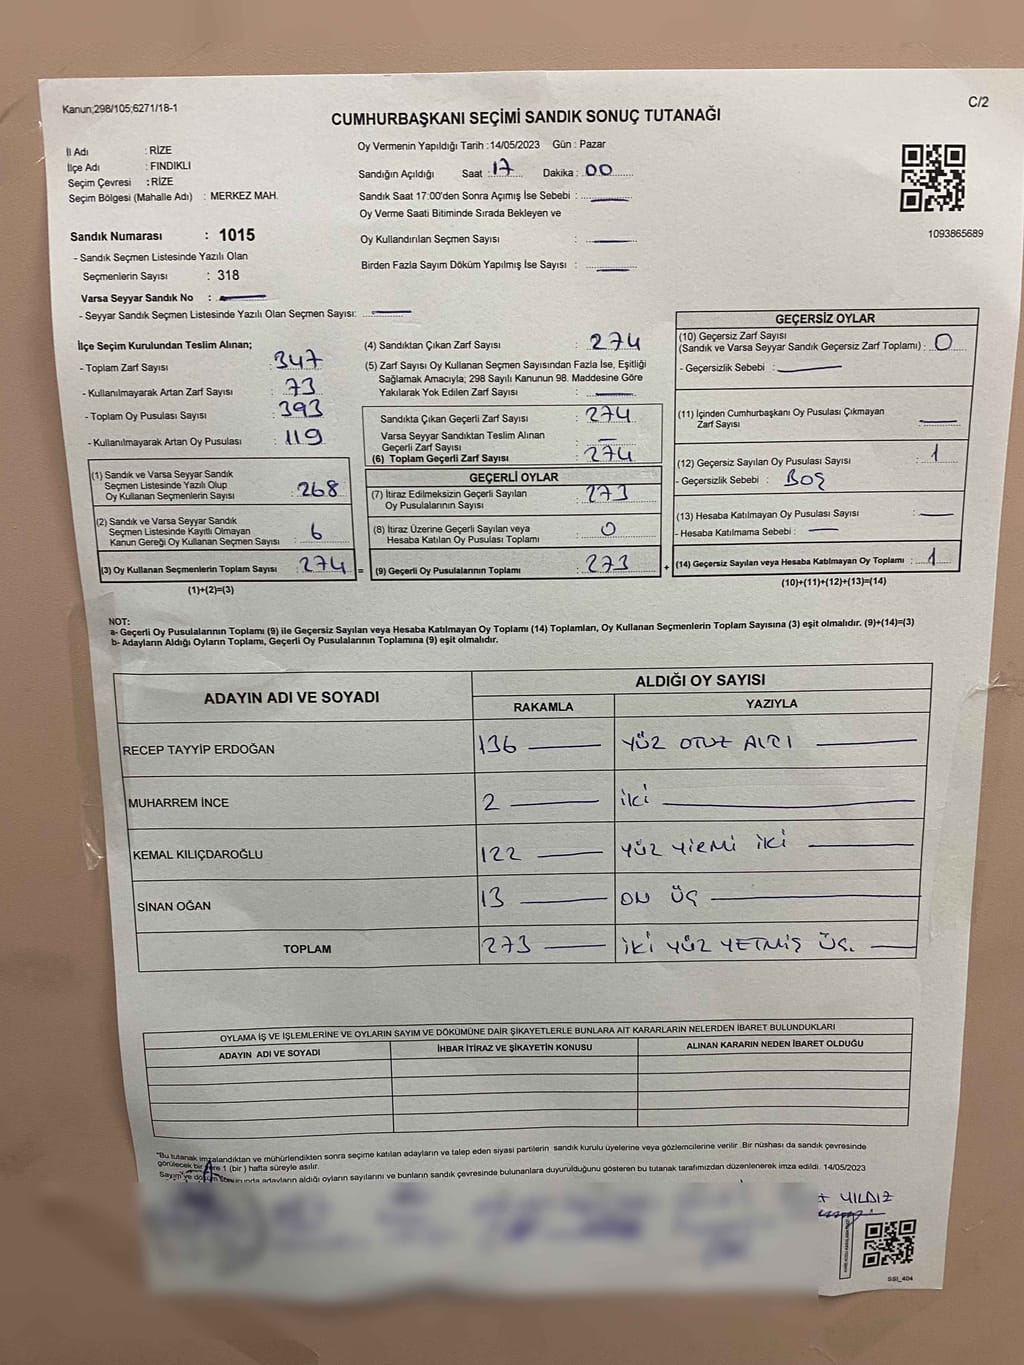 Kanun;298/105;6271/18-1
C/2
CUMHURBAŞKANI SEÇİMİ SANDIK SONUÇ TUTANAĞI
İl Adı : RİZE
İlçe Adı : FINDIKLI
Seçim Çevresi : RİZE
Seçim Bölgesi (Mahalle Adı) : MERKEZ MAH.
Sandık Numarası : 1015
- Sandık Seçmen Listesinde Yazılı Olan
Seçmenlerin Sayısı : 318
Varsa Seyyar Sandık No :
- Seyyar Sandık Seçmen Listesinde Yazılı Olan Seçmen Sayısı:
Oy Vermenin Yapıldığı Tarih :14/05/2023 Gün : Pazar
Sandığın Açıldığı Saat : 17 Dakika : 00
Sandık Saat 17:00'den Sonra Açımış İse Sebebi :
Oy Verme Saati Bitiminde Sırada Bekleyen ve
Oy Kullandırılan Seçmen Sayısı :
Birden Fazla Sayım Döküm Yapılmış İse Sayısı :
1093865689
İlçe Seçim Kurulundan Teslim Alınan;
- Toplam Zarf Sayısı : 347
- Kullanılmayarak Artan Zarf Sayısı : 73
- Toplam Oy Pusulası Sayısı : 393
- Kullanılmayarak Artan Oy Pusulası : 119
(1) Sandık ve Varsa Seyyar Sandık
Seçmen Listesinde Yazılı Olup
Oy Kullanan Seçmenlerin Sayısı : 268
(2) Sandık ve Varsa Seyyar Sandık
Seçmen Listesinde Kayıtlı Olmayan
Kanun Gereği Oy Kullanan Seçmen Sayısı : 6
(3) Oy Kullanan Seçmenlerin Toplam Sayısı : 274 =
(1)+(2)=(3)
(4) Sandıktan Çıkan Zarf Sayısı : 274
(5) Zarf Sayısı Oy Kullanan Seçmen Sayısından Fazla İse, Eşitliği
Sağlamak Amacıyla; 298 Sayılı Kanunun 98. Maddesine Göre
Yakılarak Yok Edilen Zarf Sayısı :
Sandıkta Çıkan Geçerli Zarf Sayısı : 274
Varsa Seyyar Sandıktan Teslim Alınan
Geçerli Zarf Sayısı : –
(6) Toplam Geçerli Zarf Sayısı : 274
GEÇERLİ OYLAR
(7) İtiraz Edilmeksizin Geçerli Sayılan
Oy Pusulalarının Sayısı : 273
(8) İtiraz Üzerine Geçerli Sayılan veya
Hesaba Katılan Oy Pusulası Toplamı : 0
(9) Geçerli Oy Pusulalarının Toplamı : 273 +
GEÇERSİZ OYLAR
(10) Geçersiz Zarf Sayısı
(Sandık ve Varsa Seyyar Sandık Geçersiz Zarf Toplamı) : 0
- Geçersizlik Sebebi :
(11) İçinden Cumhurbaşkanı Oy Pusulası Çıkmayan
Zarf Sayısı :
(12) Geçersiz Sayılan Oy Pusulası Sayısı : 1
- Geçersizlik Sebebi : BOŞ
(13) Hesaba Katılmayan Oy Pusulası Sayısı :
- Hesaba Katılmama Sebebi :
(14) Geçersiz Sayılan veya Hesaba Katılmayan Oy Toplamı : 1
(10)+(11)+(12)+(13)=(14)
NOT:
a- Geçerli Oy Pusulalarının Toplamı (9) ile Geçersiz Sayılan veya Hesaba Katılmayan Oy Toplamı (14) Toplamları, Oy Kullanan Seçmenlerin Toplam Sayısına (3) eşit olmalıdır. (9)+(14)=(3)
b- Adayların Aldığı Oyların Toplamı, Geçerli Oy Pusulalarının Toplamına (9) eşit olmalıdır.
ADAYIN ADI VE SOYADI
ALDIĞI OY SAYISI
RAKAMLA YAZIYLA
RECEP TAYYİP ERDOĞAN 136 YÜZ OTUZ ALTI
MUHARREM İNCE 2 İKİ
KEMAL KILIÇDAROĞLU 122 YÜZ YİRMİ İKİ
SİNAN OĞAN 13 ON ÜÇ
TOPLAM 273 İKİ YÜZ YETMİŞ ÜÇ.
OYLAMA İŞ VE İŞLEMLERİNE VE OYLARIN SAYIM VE DÖKÜMÜNE DAİR ŞİKAYETLERLE BUNLARA AİT KARARLARIN NELERDEN İBARET BULUNDUKLARI
ADAYIN ADI VE SOYADI İHBAR İTİRAZ VE ŞİKAYETİN KONUSU ALINAN KARARIN NEDEN İBARET OLDUĞU
"Bu tutanak imzalandıktan ve mühürlendikten sonra seçime katılan adayların ve talep eden siyasi partilerin sandık kurulu üyelerine veya gözlemcilerine verilir. Bir nüshası da sandık çevresinde
görülecek bir yere 1 (bir) hafta süreyle asılır.
Sayım ve döküm sonunda adayların aldığı oyların sayılarını ve bunların sandık çevresinde bulunanlara duyurulduğunu gösteren bu tutanak tarafımızdan düzenlenerek imza edildi. 14/05/2023
YILDIZ
SSI_404